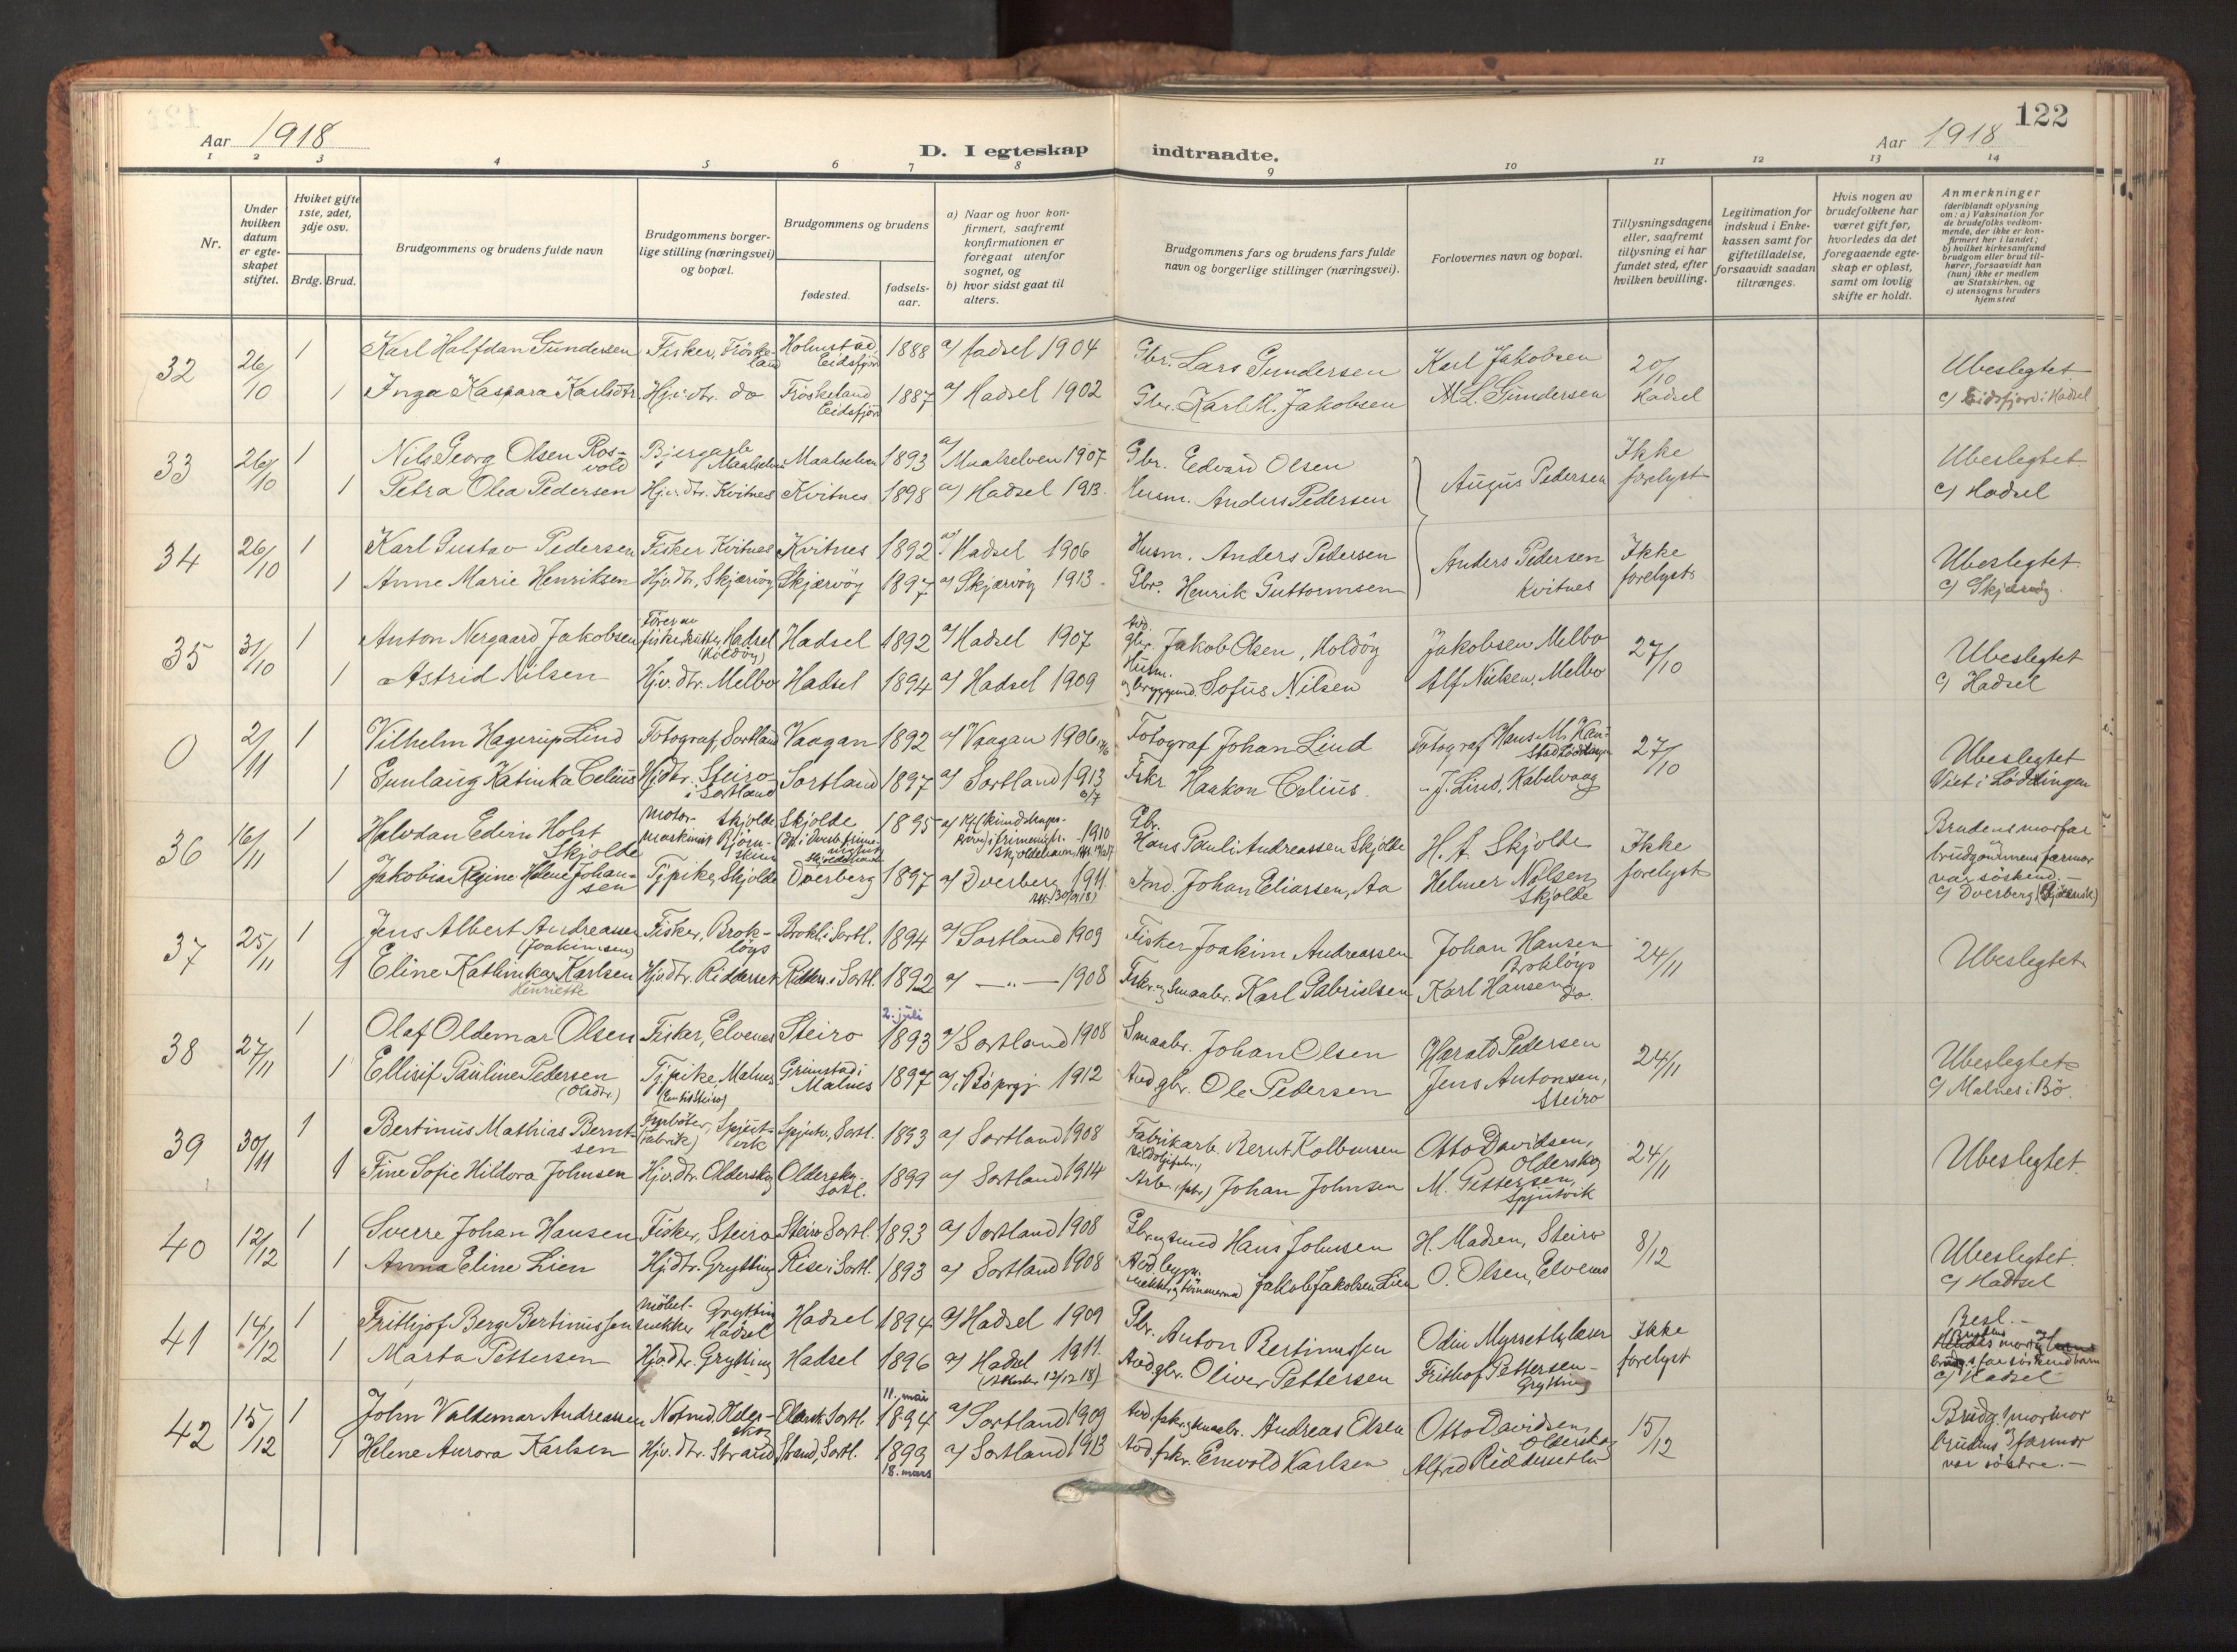 122
Aar 1918
D. I egteskap indtraadte.
Aar 1918
1 2 3 4 5 6 7 8 9 10 11 12 13 14
Nr.
Under hvilken datum er egteskapet stiftet.
Hviket gifte 1ste, 2det, 3dje osv.
Brdg. Brud.
Brudgommens og brudens fulde navn
Brudgommens borgerlige stilling (næringsvei) og bopæl.
Brudgommens og brudens
fødested.
fødselsaar.
a) Naar og hvor konfirmert, saafremt konfirmationen er foregaat utenfor sognet, og
b) hvor sidst gaat til alters.
Brudgommens fars og brudens fars fulde navn og borgerlige stillinger (næringsvei).
Forlovernes navn og bopæl.
Tillysningsdagene eller, saafremt tillysning ei har fundet sted, efter hvilken bevilling.
Legitimation for indskud i Enkekassen samt for giftetilladelse, forsaavidt saadan tiltrænges.
Hvis nogen av brudefolkene har været gift før, hvorledes da det foregaaende egteskap er opløst, samt om lovlig skifte er holdt.
Anmerkninger (deriblandt oplysning om: a) Vaksination for de brudefolks vedkommende, der ikke er konfirmert her i landet; b) hvilket kirkesamfund brudgom eller brud tilhører, forsaavidt han (hun) ikke er medlem av Statskirken, og c) utensogns bruders hjemsted
32 26/10 1 Karl Halfdan Gundersen Fisker, Frøskeland Holmstad Eidsfjord 1888 a/ Hadsel 1904 Gbr. Lars Gundersen Karl Jakobsen 20/10 Ubeslegtet
1 Inga Kaspara Karlsdtr. Hjv. dtr. do Frøskeland Eidsfjord 1887 a/ Hadsel 1902 Gbr. Karl M. Jakobsen M. L. Gundersen Hadsel c/ Eidsfjord i Hadsel
33 26/10 1 Nils Georg Olsen Rosvold Bjergarb. Maalselven Maalselven 1893 a/ Maalselven 1907 Gbr. Edvard Olsen Ikke Ubeslegtet
1 Petra Olea Pedersen Hjv. dtr. Kvitnes Kvitnes 1898 a/ Hadsel 1913. Husm. Anders Pedersen August Pedersen forelyst c/ Hadsel
34 26/10 1 Karl Gustav Pedersen Fisker Kvitnes Kvitnes 1892 a/ Hadsel 1906 Husm. Anders Pedersen Anders Pedersen Ikke Ubeslegtet.
1 Anne Marie Henriksen Hjv. dtr, Skjærvøy Skjærvøy 1897 a/ Skjærvøy 1913. Gbr. Henrik Guttormsen Kvitnes forelyst c/ Skjærvøy.
35 31/10 1 Anton Nergaard Jakobsen Fører av fiskeskøite, Hadsel Hadsel 1892 a/ Hadsel 1907 gbr. Jakob Olsen, Holdøy Jakobsen Melbo 27/10 Ubeslegtet
1 Astrid Nilsen Hjv. dtr. Melbo Hadsel 1894 a/ Hadsel 1909 Husm. og bryggemd. Sofus Nilsen Alf Nielsen, Melbo c/ Hadsel
0 2/11 1 Vilhelm Hagerup Lind Fotograf, Sortland Vaagan 1892 a/ Vaagan 1906 Fotograf Johan Lind Fotograf Hans M. 27/10 Ubeslegtet
1 Gunlaug Katinka Celius Hjdtr. Steiro i Sortland Sortland 1897 a/ Sortland 1913 Fskr Haakon Celius. - J. Lind, Kabelvaag Viet i Lødingen
36 16/11 1 Halvdan Edvin Holst Skjolde Motormaskinist Skjolde Bjørnskin Skjolde 1895 1910 Gbr. Hans Pauli Andreassen Skjolde H. A. Skjolde Ikke Brudens morfar og brudgommens farmor var søskend. -
1 Jakobia Regine Helene Johansen Tjpike, Skjolde Dverberg 1897 a/ Dverberg 1911. Ind. Johan Eliassen, Aa Helmer Nilsen Skjolde forelyst c/ Dverberg
37 25/11 1 Jens Albert Andreassen (Joakimsen) Fisker, Brokløys Brokl. i Sortl. 1894 a/ Sortland 1909 Fisker Joakim Andreassen Johan Hansen Brokløys 24/11 Ubeslegtet
1 Eline Kathinka Karlsen Henriette Hjv. dtr. Ridderset Ridders. i Sortl. 1892 a/ —"— 1908 Fskr. og Smaabr. Karl Gabrielsen Karl Hansen do.
38 27/11 1 Olaf Oldemar Olsen Fisker, Elvenes Steiro 2. juli 1893 a/ Sortland 1908 Smaabr. Johan Olsen Harald Pedersen 24/11 Ubeslegtet
1 Ellisif Pauline Pedersen (Olsdtr.) Tjpike, Malnes Grimstad i Malnes 1897 a/ Bø prgj 1912 Avd gbr. Ole Pedersen Jens Antonsen, Steiro c/ Malnes i Bø.
39 30/11 1 Bertinus Mathias Berntsen Fyrbøter, (Fabrik) Spjutvik Spjutv., Sortl. 1893 a/ Sortland 1908 Fabrikarb. Bernt Kolbensen Otto Davidsen, Olderskog 24/11 Ubeslegtet
1 Tine Sofie Hildora Johnsen Hjv. dtr. Olderskog Oldersk. Sortl. 1899 a/ Sortland 1914 Arb. Johan Johnsen M. Pettersen, Spjutvik
40 12/12 1 Sverre Johan Hansen Fisker, Steiro Steiro Sortl. 1893 a/ Sortland 1908 Gbr. og smed Hans Johnsen H. Madsen, Steiro 8/12 Ubeslegtet.
1 Anna Eline Lien Hjdtr. Grytting Rise i Sortl. 1893 a/ Sortland 1908 Jakob Jakobsen Lien O. Olsen, Elvenes c/ Hadsel
41 14/12 1 Frithjof Berg Bertinussen Møbelsnekker Grytting Hadsel Hadsel 1894 a/ Hadsel 1909 Gbr. Anton Bertinussen Odin Myrseth, lærer Ikke Besl. -
1 Marta Pettersen Hjv. dtr. Grytting Hadsel 1896 a/ Hadsel 1911. Avd gbr. Oliver Pettersen Frithof Pettersen - Grytting forelyst c/ Hadsel
42 15/12 1 John Valdemar Andreassen Notmd, Olderskog Oldersk Sortl. 11. mai 1894 a/ Sortland 1909 Avd. fskr. og smaabr. Andreas Olsen Otto Davidsen, Olderskog 15/12 Brudg. mormor og brudens farmor var søstre. -
1 Helene Aurora Karlsen Hjv. dtr. Strand Strand, Sortl. 1899 18. mars a/ Sortland 1913 Avd fskr. Enevold Karlsen Alfred Ridderseth